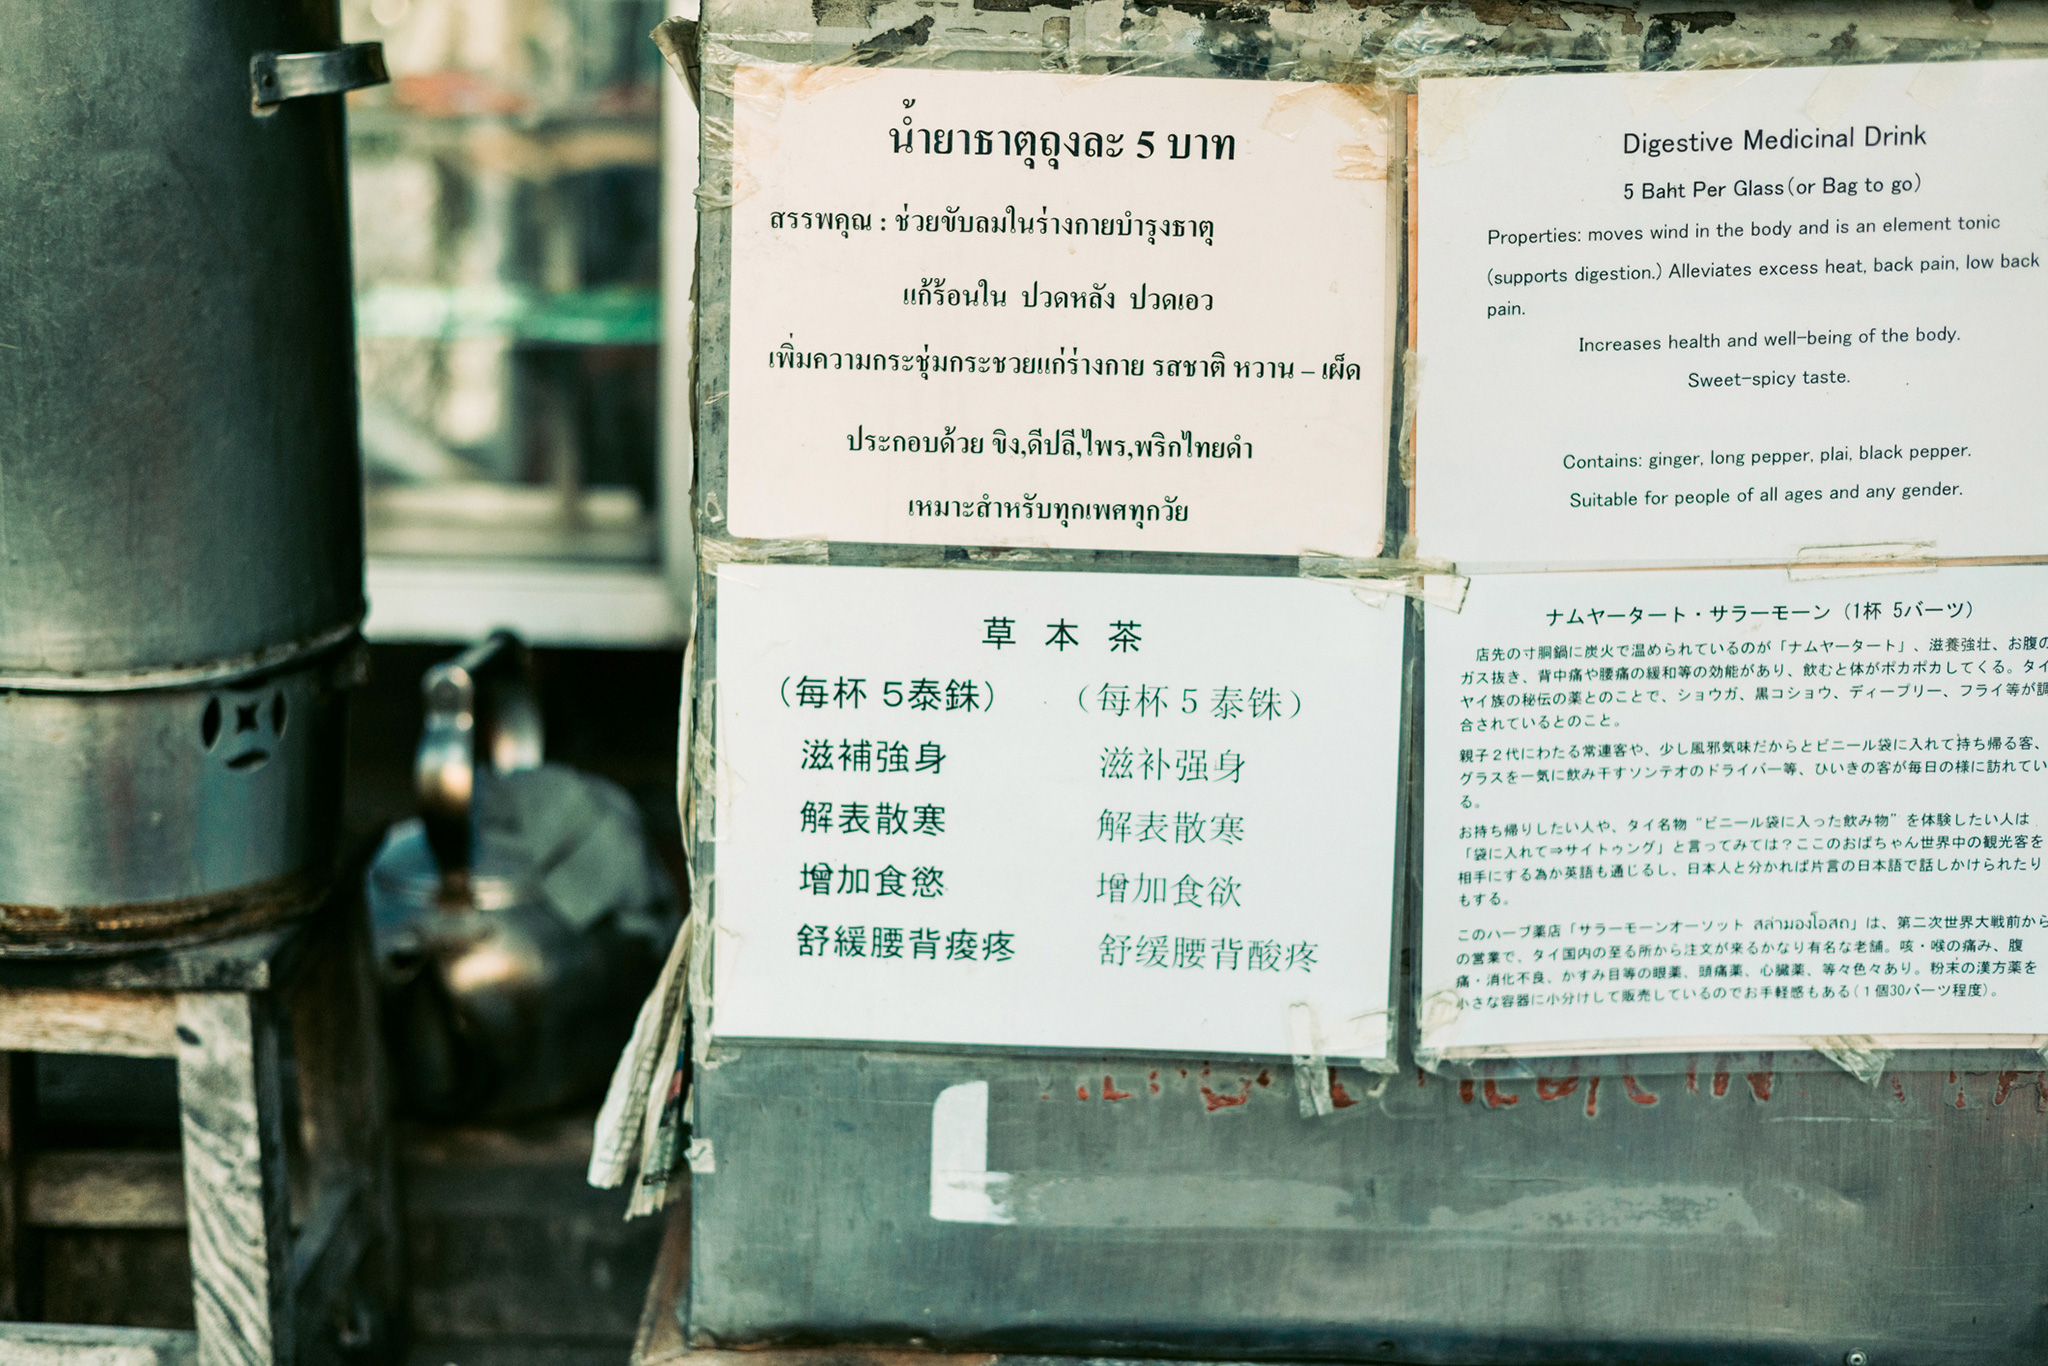 น้ำยาธาตุถุงละ 5 บาท
สรรพคุณ : ช่วยขับลมในร่างกายบำรุงธาตุ
แก้ร้อนใน ปวดหลัง ปวดเอว
เพิ่มความกระชุ่มกระชวยแก่ร่างกาย รสชาติ หวาน – เผ็ด
ประกอบด้วย ขิง,ดีปลี,ไพร,พริกไทยดำ
เหมาะสำหรับทุกเพศทุกวัย
Digestive Medicinal Drink
5 Baht Per Glass(or Bag to go)
Properties: moves wind in the body and is an element tonic
(supports digestion.) Alleviates excess heat, back pain, low back
pain.
Increases health and well-being of the body.
Sweet-spicy taste.
Contains: ginger, long pepper, plai, black pepper.
Suitable for people of all ages and any gender.
草 本 茶
（每杯 5泰銖）
滋補強身
解表散寒
增加食慾
舒緩腰背痠疼
（每杯 5 泰铢）
滋补强身
解表散寒
增加食欲
舒缓腰背酸疼
ナムヤータート・サラーモーン（1杯 5バーツ）
店先の寸胴鍋に炭火で温められているのが「ナムヤータート」、滋養強壮、お腹の
ガス抜き、背中痛や腰痛の緩和等の効能があり、飲むと体がポカポカしてくる。タイ
ヤイ族の秘伝の薬とのことで、ショウガ、黒コショウ、ディープリー、フライ等が調
合されているとのこと。
親子２代にわたる常連客や、少し風邪気味だからとビニール袋に入れて持ち帰る客、
グラスを一気に飲み干すソンテオのドライバー等、ひいきの客が毎日の様に訪れてい
る。
お持ち帰りしたい人や、タイ名物“ビニール袋に入った飲み物”を体験したい人は
「袋に入れて⇒サイトゥング」と言ってみては？ここのおばちゃん世界中の観光客を
相手にする為か英語も通じるし、日本人と分かれば片言の日本語で話しかけられたり
もする。
このハーブ薬店「サラーモーンオーソット สล่ามองโอสถ」は、第二次世界大戦前から
の営業で、タイ国内の至る所から注文が来るかなり有名な老舗。咳・喉の痛み、腹
痛・消化不良、かすみ目等の眼薬、頭痛薬、心臓薬、等々色々あり。粉末の漢方薬を
小さな容器に小分けして販売しているのでお手軽感もある（１個30バーツ程度）。